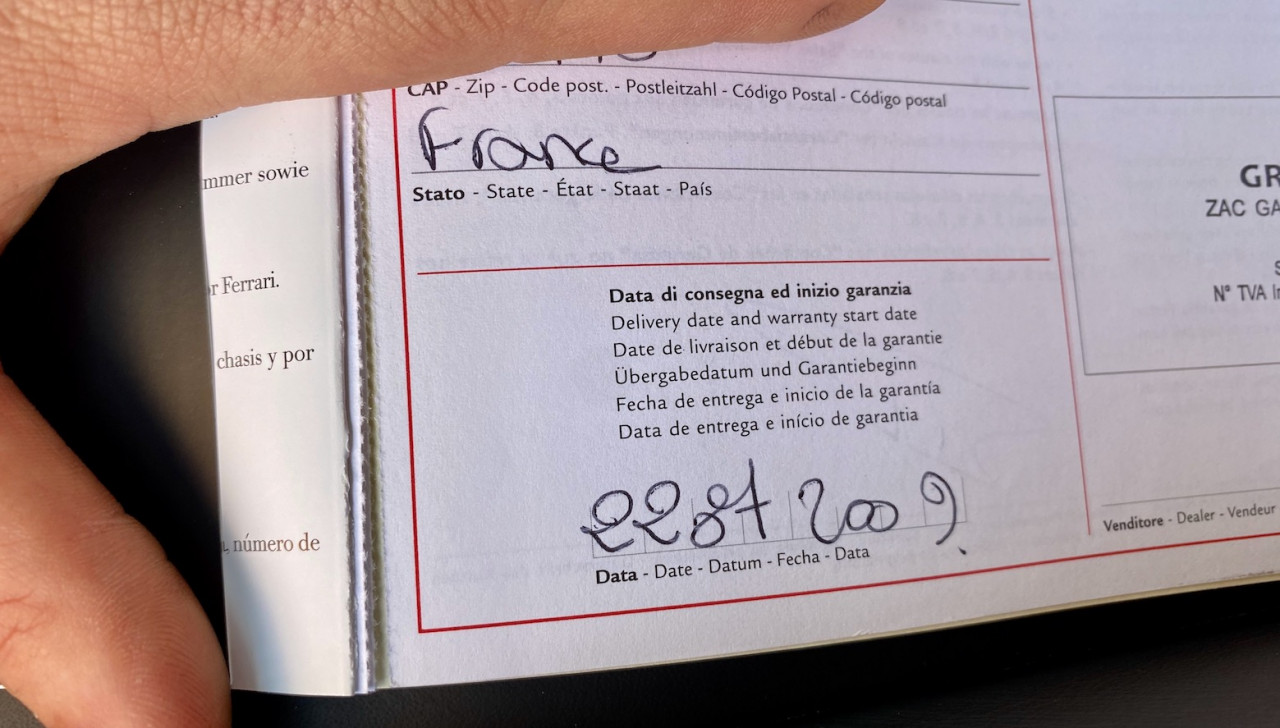 CAP - Zip - Code post. - Postleitzahl - Código Postal - Código postal
France
Stato - State - État - Staat - País
Data di consegna ed inizio garanzia
Delivery date and warranty start date
Date de livraison et début de la garantie
Übergabedatum und Garantiebeginn
Fecha de entrega e inicio de la garantía
Data de entrega e início de garantia
22 2009
Data - Date - Datum - Fecha - Data
mmer sowie
r Ferrari.
chasis y por
número de
GR
ZAC GA
S
N° TVA I
Venditore - Dealer - Vendeur